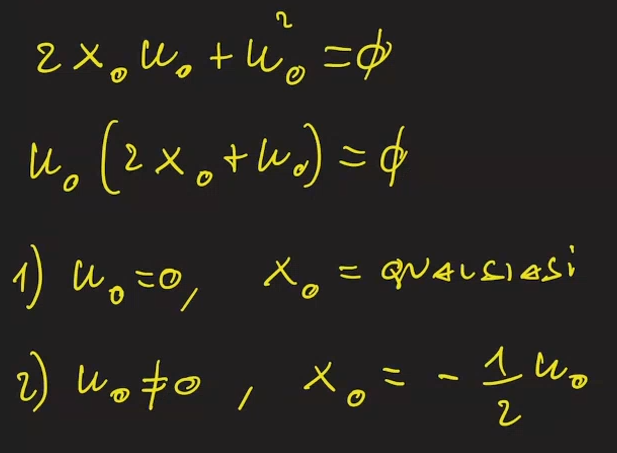 2x₀u₀ + u₀² = ϕ
u₀(2x₀ + u₀) = ϕ
1) u₀ = 0, x₀ = QUALSIASI
2) u₀ ≠ 0, x₀ = - 1/2 u₀